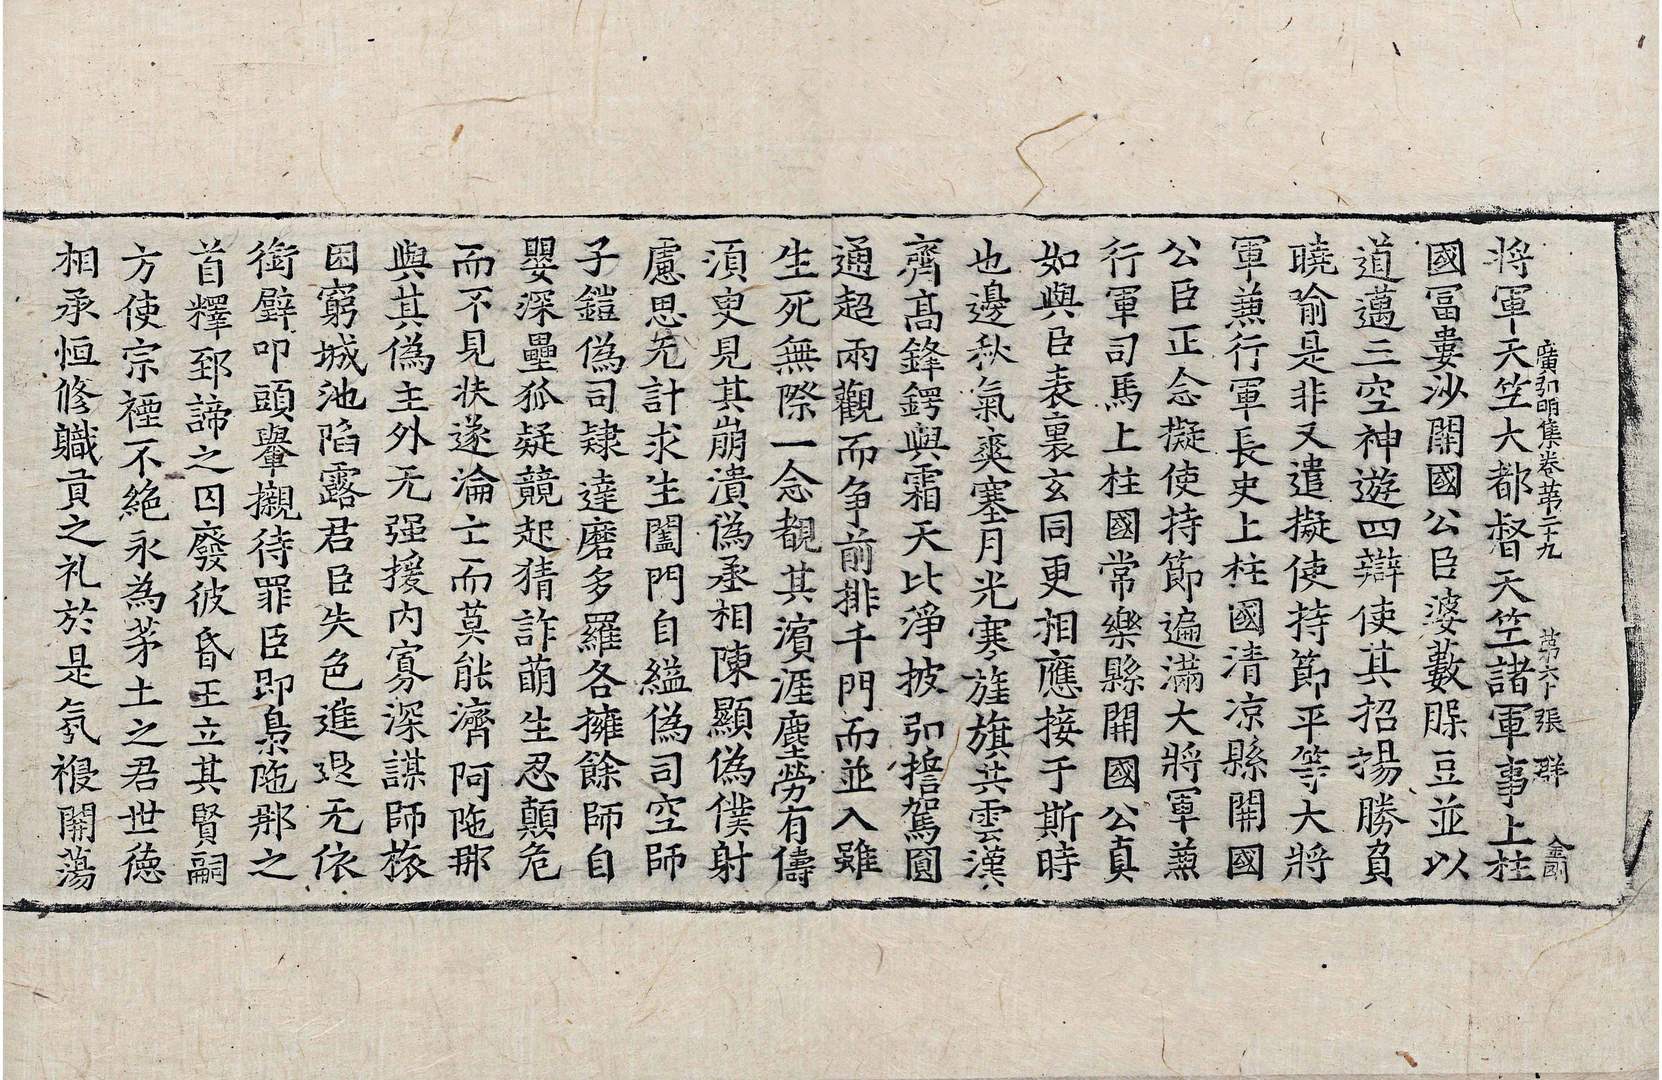 廣弘明集卷苐二十九　苐六十張　群　金剛
將軍天竺大都督天竺諸軍事上柱
國冨婁沙開國公臣婆藪𦜕豆並以
道邁三空神遊四辯使其招揚勝負
曉喻是非又遣擬使持節平等大將
軍兼行軍長史上柱國清凉縣開國
公臣正念擬使持節遍滿大將軍兼
行軍司馬上柱國常樂縣開國公真
如與臣表裏玄同更相應接于斯時
也邊秋氣爽塞月光寒旌旗共雲漢
齊髙鋒鍔與霜天比淨披弘誓駕圓
通超兩觀而争前排千門而並入雖
生死無際一念覩其濱涯塵勞有儔
湏臾見其崩潰偽丞相陳顯偽僕射
慮思无計求生闔門自縊偽司空師
子鎧偽司隷達磨多羅各擁餘師自
嬰深壘狐疑競起猜詐萌生忍顛危
而不見扶遂淪亡而莫能濟阿陁那
與其偽主外无强援内寡深謀師旅
困窮城池陷露君臣失色進退无依
銜璧叩頭轝櫬待罪臣即梟陁那之
首釋郅諦之囚廢彼昏王立其賢嗣
方使宗禋不絶永為茅土之君世德
相承恒修職貢之礼於是氛祲開蕩